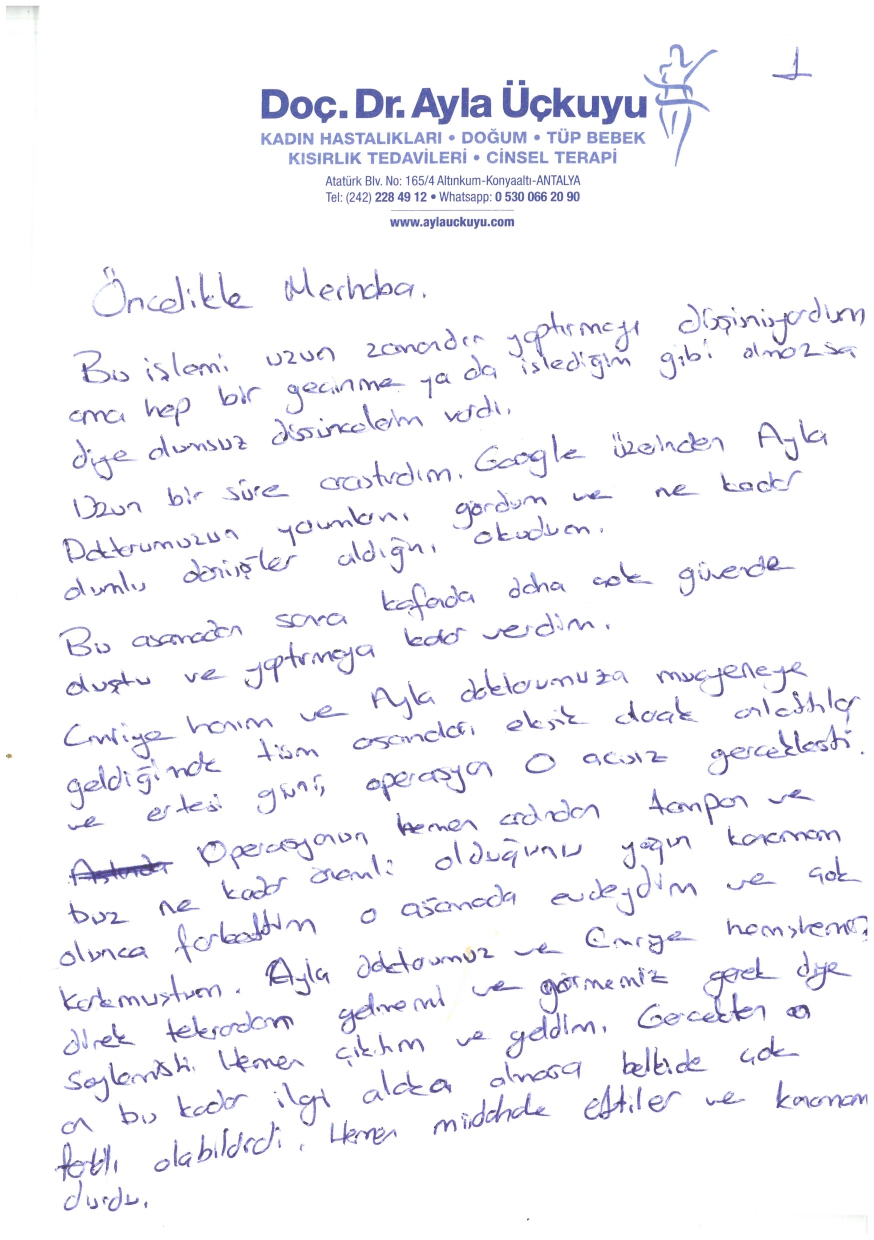 1
Doç. Dr. Ayla Üçkuyu
KADIN HASTALIKLARI • DOĞUM • TÜP BEBEK
KISIRLIK TEDAVİLERİ • CİNSEL TERAPİ
Atatürk Blv. No: 165/4 Altınkum-Konyaaltı-ANTALYA
Tel: (242) 228 49 12 • Whatsapp: 0 530 066 20 90
www.aylauckuyu.com
Öncelikle Merhaba.
Bu işlemi uzun zamandır yaptırmayı düşünüyordum
ama hep bir geçinme ya da istediğim gibi olmazsa
diye olumsuz düşüncelerim vardı.
Uzun bir süre araştırdım. Google üzerinden Ayla
Doktorumuzun yorumlarını gördüm ve ne kadar
olumlu dönüşler aldığını okudum.
Bu aşamadan sonra kafamda daha çok güvende
oluştu ve yaptırmaya karar verdim.
Emriye hanım ve Ayla doktorumuza muayeneye
geldiğimde tüm aşamaları eksik olarak anlattılar
ve ertesi günü operasyon O acısız gerçekleşti.
Operasyonun hemen ardından tampon ve
buz ne kadar önemli olduğunu yoğun kanamam
olunca farkettim o aşamada evdeydim ve çok
korkmuştum. Ayla doktorumuz ve Emriye hemşiremiz
direk tekrardan gelmemi ve görmemiz gerek diye
söylemişti. Hemen çıktım ve geldim. Gerçekten
bu kadar ilgi alaka olmasa belkide çok
farklı olabilirdi. Hemen müdahale ettiler ve kanamam
durdu.